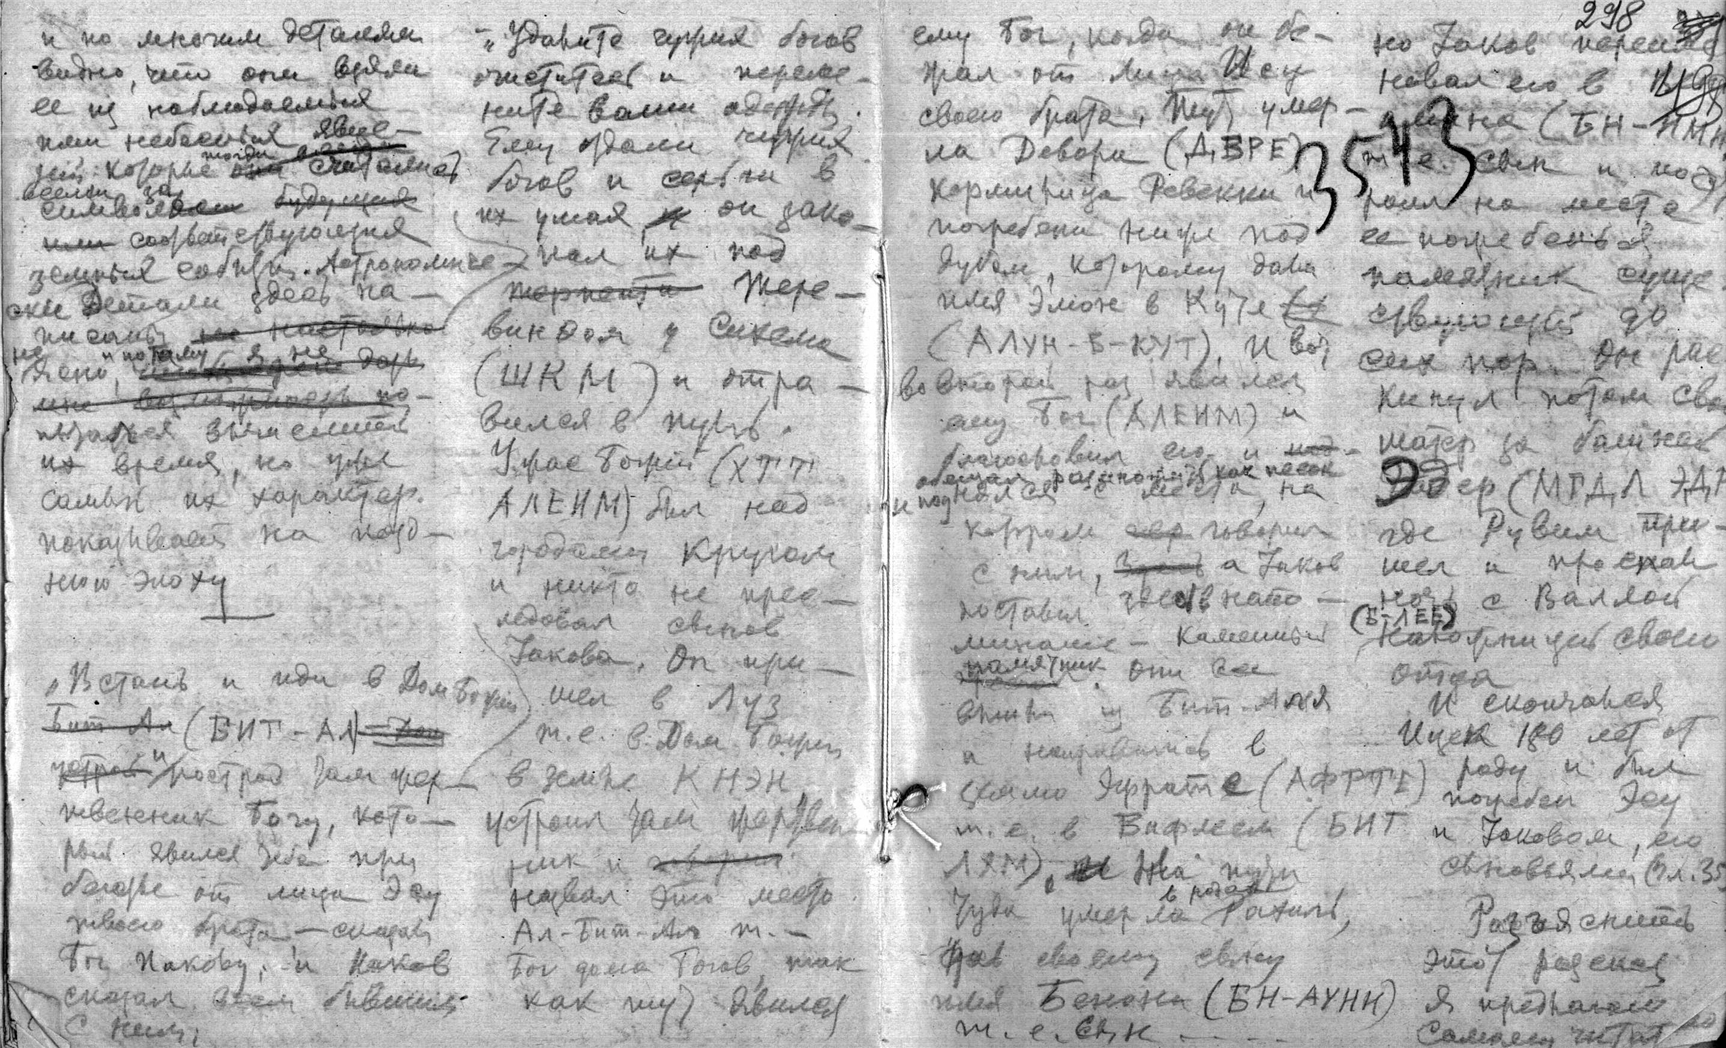 и по многим деталям
видно, что они взяли
ее из наблюдаемых
ими небесных явле-
ний которые тогда считались
всеми за
символами будущих
или соответствующих
земных событий. Астрономиче-
ски Детали здесь на-
писаны не настолько
не ясно, и потому я не
мне возможность по-
пытаться вычислить
их время, но уже
самый их характер
показывает на позд-
нюю эпоху
„Встань и иди в Дом Божий
Бит-Ал (БИТ-АЛ)
и построй там жер-
твенник Богу, кото-
рый явился тебе при
бегстве от лица Эсу
твоего брата — сказал
Бог Иакову, и Иаков
сказал всем бывшим
с ним:
— „Удалите чужих богов
очиститесь и переме-
ните ваши одежды.
Ему отдали чужих
богов и серьги в
их ушах, и он зако-
пал их под
Тере-
винфом у Сихема
(ШКМ) и отпра-
вился в путь.
Ужас Божий (ХТТ
АЛЕИМ) был над
городами кругом
и никто не прес-
ледовал сынов
Иакова. Он при-
шел в Луз
т.е. в Дом Божий
в земле КНЭН,
устроил там жертвен
ник и
назвал это место
Ал-Бит-Ал т. —
Бог дома Богов, так
как тут явился
ему Бог, когда он бе-
жал от лица Исy
своего брата. Тут умер-
ла Девора (ДБРЕ)
кормилица Ревекки и
погребена ниже под
дубом, которому дали
имя Элон в Куте
(АЛУН-Б-КУТ). И вот
во второй раз явился
ему Бог (АЛЕИМ) и
благословил его и
обещал размножить как песок
и поднялся с места, на
котором говорил
с ним, а Иаков
поставил здесь в напо-
минание — каменный
памятник. Они
вышли из Бит-Аля
и направились в
сухую Эфрате (АФРТЕ)
т. е. в Вифлеем (БИТ
ЛХМ), На пути
туда умерла в родах Рахиль,
дав своему сыну
имя Бенони (БН-АУНИ)
т. е. Сын - - - -
298
но Иаков переиме
новал его в
амина (БН-ИМН
т. е. сын и пос
роил на месте
ее погребенья
памятник суще
ствующий до
сих пор. Он рас
кинул потом свой
шатер за башней
Эдер (МГДЛ ЭДР
где Рувим при-
шел и проспал
ночь с Валлой
(Б-ЛЕЕ)
наложницей своего
отца
И скончался
Ицек 180 лет от
роду и был
погребен Эсу
и Иаковом, его
сыновьями (Гл. 35
Разъяснить
этот рассказ
я предлагаю
самому читат
3543